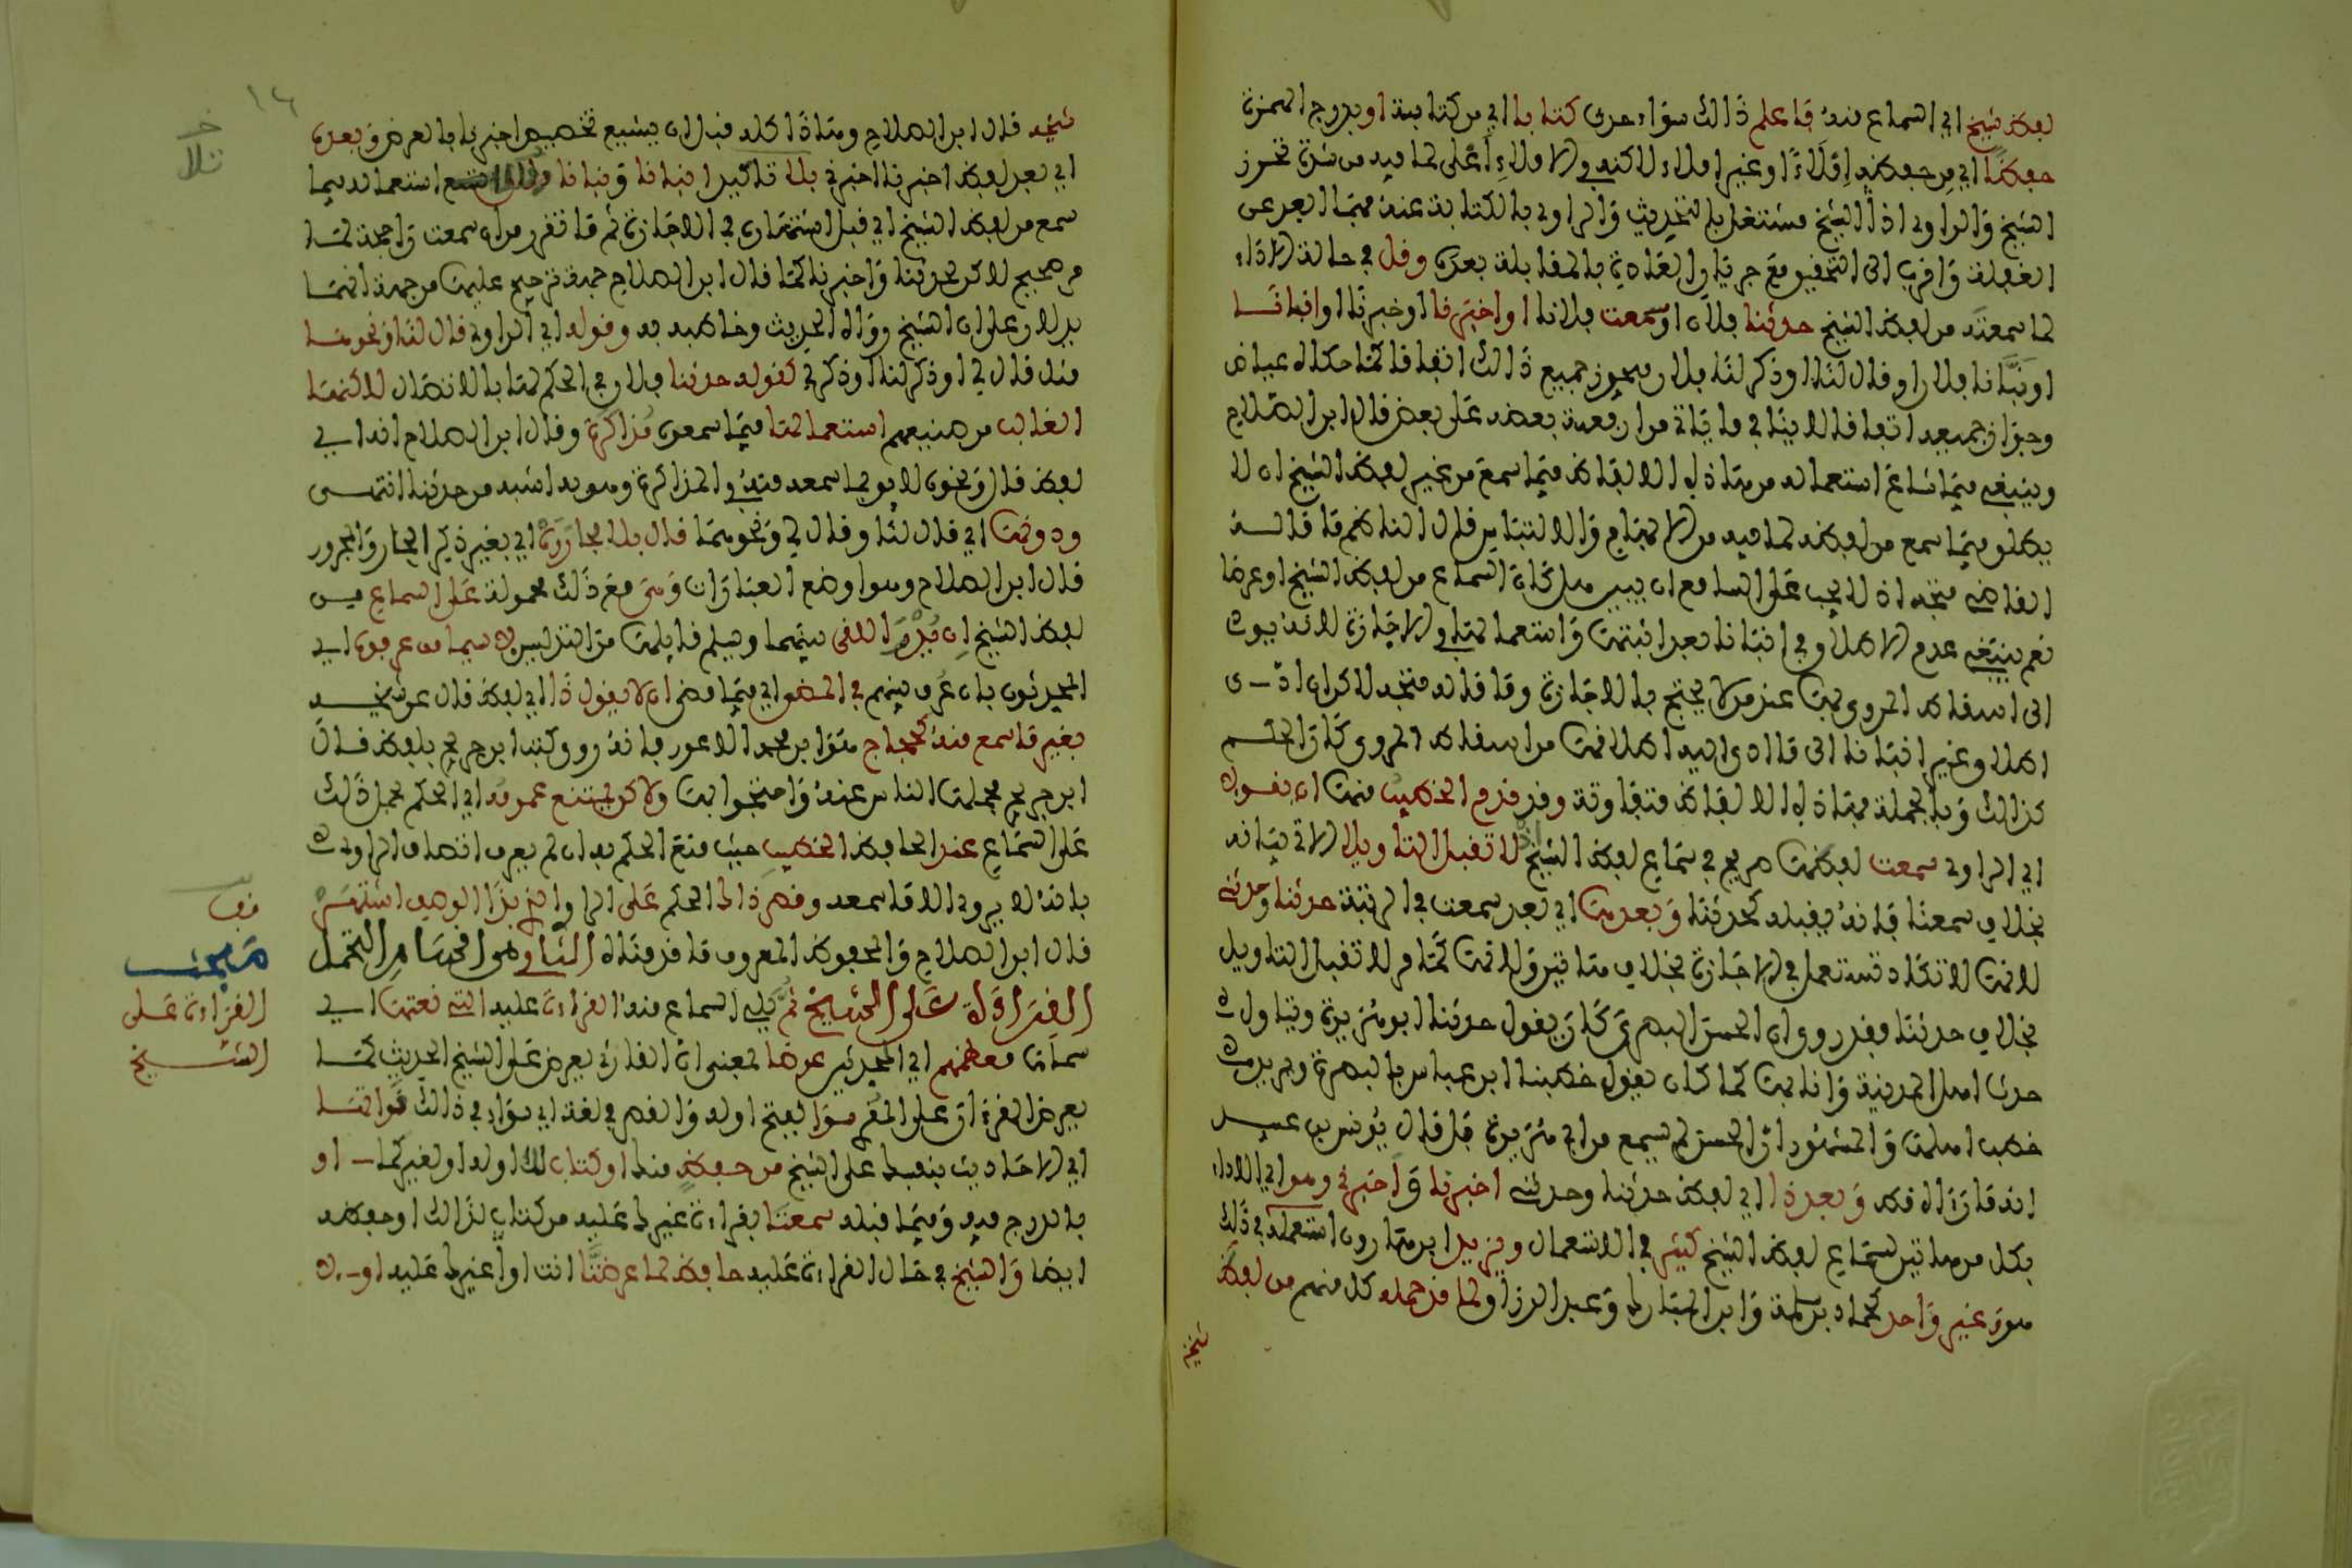 لفظ شيخ اي السماع منه فاعلم ذلك سواء حدث كتابا اي من كتابه او بدروج الهمزة
حفظا اي من حفظه إملاءً او غير إملاء لاكنه في الاملاء أعلى لما فيه من شدة تحرز
الشيخ والراوي اذ الشيخ مشتغل بالتحديث والراوي بالكتابة عنه فهما ابعد عن
الغفلة واقرب الى التحقيق مع جريان العادة بالمقابلة بعده وقل في حالة الاداء
لما سمعته من لفظ الشيخ حدثنا فلان او سمعت فلانا او اخبرنا او خبرنا او انبانا
او نبّانا فلان او قال لنا او ذكر لنا فلان فيجوز جميع ذلك اتفاقا كما حكاه عياض
وجواز جميعه اتفاقا لا ينافي ما ياتي من ارفعية بعضه على بعض قال ابن الصلاح
وينبغي فيما شاع استعماله من هاذه الالفاظ فيما سمع من غير لفظ الشيخ ان لا
يطلق فيما سمع من لفظه لما فيه من الابهام والالتباس قال الناظم ما قاله
القاضي متجه اذ لا يجب على السامع ان يبين هل كان السماع من لفظ الشيخ او عرضا
نعم ينبغي عدم الاطلاق في انبانا بعد اشتهار استعمالها في الاجازة لانه يودي
الى اسقاط المروي بها عند من لا يحتج بالاجازة وما قاله متجه لاكن ان ادى
اطلاق غير انبانا الى ما ادى اليه اطلاقها من اسقاط المروي كان الحكم
كذلك وبالجملة فهاذه الالفاظ متفاوتة وقد قدم الخطيب منها ان يقول
اي الراوي سمعت لفظها صريح في سماع لفظ الشيخ اذ لا تقبل التاويل الاتي بيانه
بخلاف سمعنا فانه يقبله كحدثنا وبعدها اي بعد سمعت في الرتبة حدثنا وحدثني
لانها لا تكاد تستعمل في الاجازة بخلاف هاتين ولانها كما مر لا تقبل التاويل
بخلاف حدثنا فقد روي ان الحسن البصري كان يقول حدثنا ابو هريرة ويتاول
حدث اهل المدينة وانا بها كما كان يقول خطبنا ابن عباس بالبصرة ويريد
خطب اهلها والمشهور ان الحسن لم يسمع من ابي هريرة بل قال يونس بن عبيد
انه ما رآه قط وبعد ذا اي لفظ حدثنا وحدثني اخبرنا واخبرني وهو اي الاداء
بكل من هاتين لسماع لفظ الشيخ كثير في الاستعمال ويزيد ابن هارون استعمله في ذلك
هو وغير واحد كحماد بن سلمة وابن المبارك وعبد الرزاق لما قد حمله كل منهم من لفظ
شيخه
١٤
شيخه قال ابن الصلاح وهاذا كله قبل ان يشيع تخصيص اخبرنا بالعرض وبعده
اي بعد لفظ اخبرنا اخبرني بلا تاكيد انبانا ونبانا استعماله فيما
سمع من لفظ الشيخ اي قبل اشتهاره في الاجازة ثم ما تقرر من ان سمعت راجحة لها
مرجح لاكن لحدثنا واخبرنا كما قال ابن الصلاح جهة ترجيح عليها من جهة انهما
يدلان على ان الشيخ رواه الحديث وخاطبه به وقوله اي الراوي قال لنا ونحوها
مثل قال لي او ذكر لنا او ذكر لي كقوله حدثنا فلان في الحكم لها بالاتصال لاكنها
الغالب من صنيعهم استعمالها فيما سمعوه مذاكرة وقال ابن الصلاح انه اي
لفظ قال ونحوه لائق بما سمعه منه في المذاكرة وهو به اشبه من حدثنا انتهى
ودونها اي قال لنا وقال لي ونحوهما قال بلا مجاررة اي بغير ذكر الجار والمجرور
قال ابن الصلاح وهو اوضع العبارات وهي مع ذلك محمولة على السماع من
لفظ الشيخ ان يُدر اللقي بينهما وسلم قايلها من التدليس لاسيما من عرفوه اي
المحدثون بان عُرف بينهم في المضي اي فيما مضى ان لا يقول ذا اي لفظ قال عن شيخه
بغير ما سمع منه كحجاج هو ابن محمد الاعور فانه روى كتب ابن جريج بلفظ قال
ابن جريج فحملها الناس عنه واحتجوا بها ولاكن يمتنع عمومه اي الحكم بحمل ذلك
على السماع عند الحافظ الخطيب حيث منع الحكم به ان لم يعرف اتصاف الراوي
بانه لا يروي الا ما سمعه وقصر ذا الحكم على الراوي بذا الوصف اشتهر
قال ابن الصلاح والمحفوظ المعروف ما قدمناه الثاني من اقسام التحمل
القراءة على الشيخ ثم يلي السماع منه القراءة عليه التي نعتها اي
سماها معظمهم اي المحدثين عرضا بمعنى ان القارئ يعرض على الشيخ الحديث كما
يعرض القرءان على المقرئ سوا بفتح اوله والقصر في لغة اي سواء في ذلك قراتها
اي الاحاديث بنفسك على الشيخ من حفظ منك او كتاب لك اوله او لغيركما او
بالدروج فيه وفيما قبله سمعتا بقراءة غيرك عليه من كتاب كذالك او حفظه
ايضا والشيخ في حال القراءة عليه حافظ لما عرضتَا انت او غيرك عليه او لا
قف
مبحث
القراءة على
الشيخ